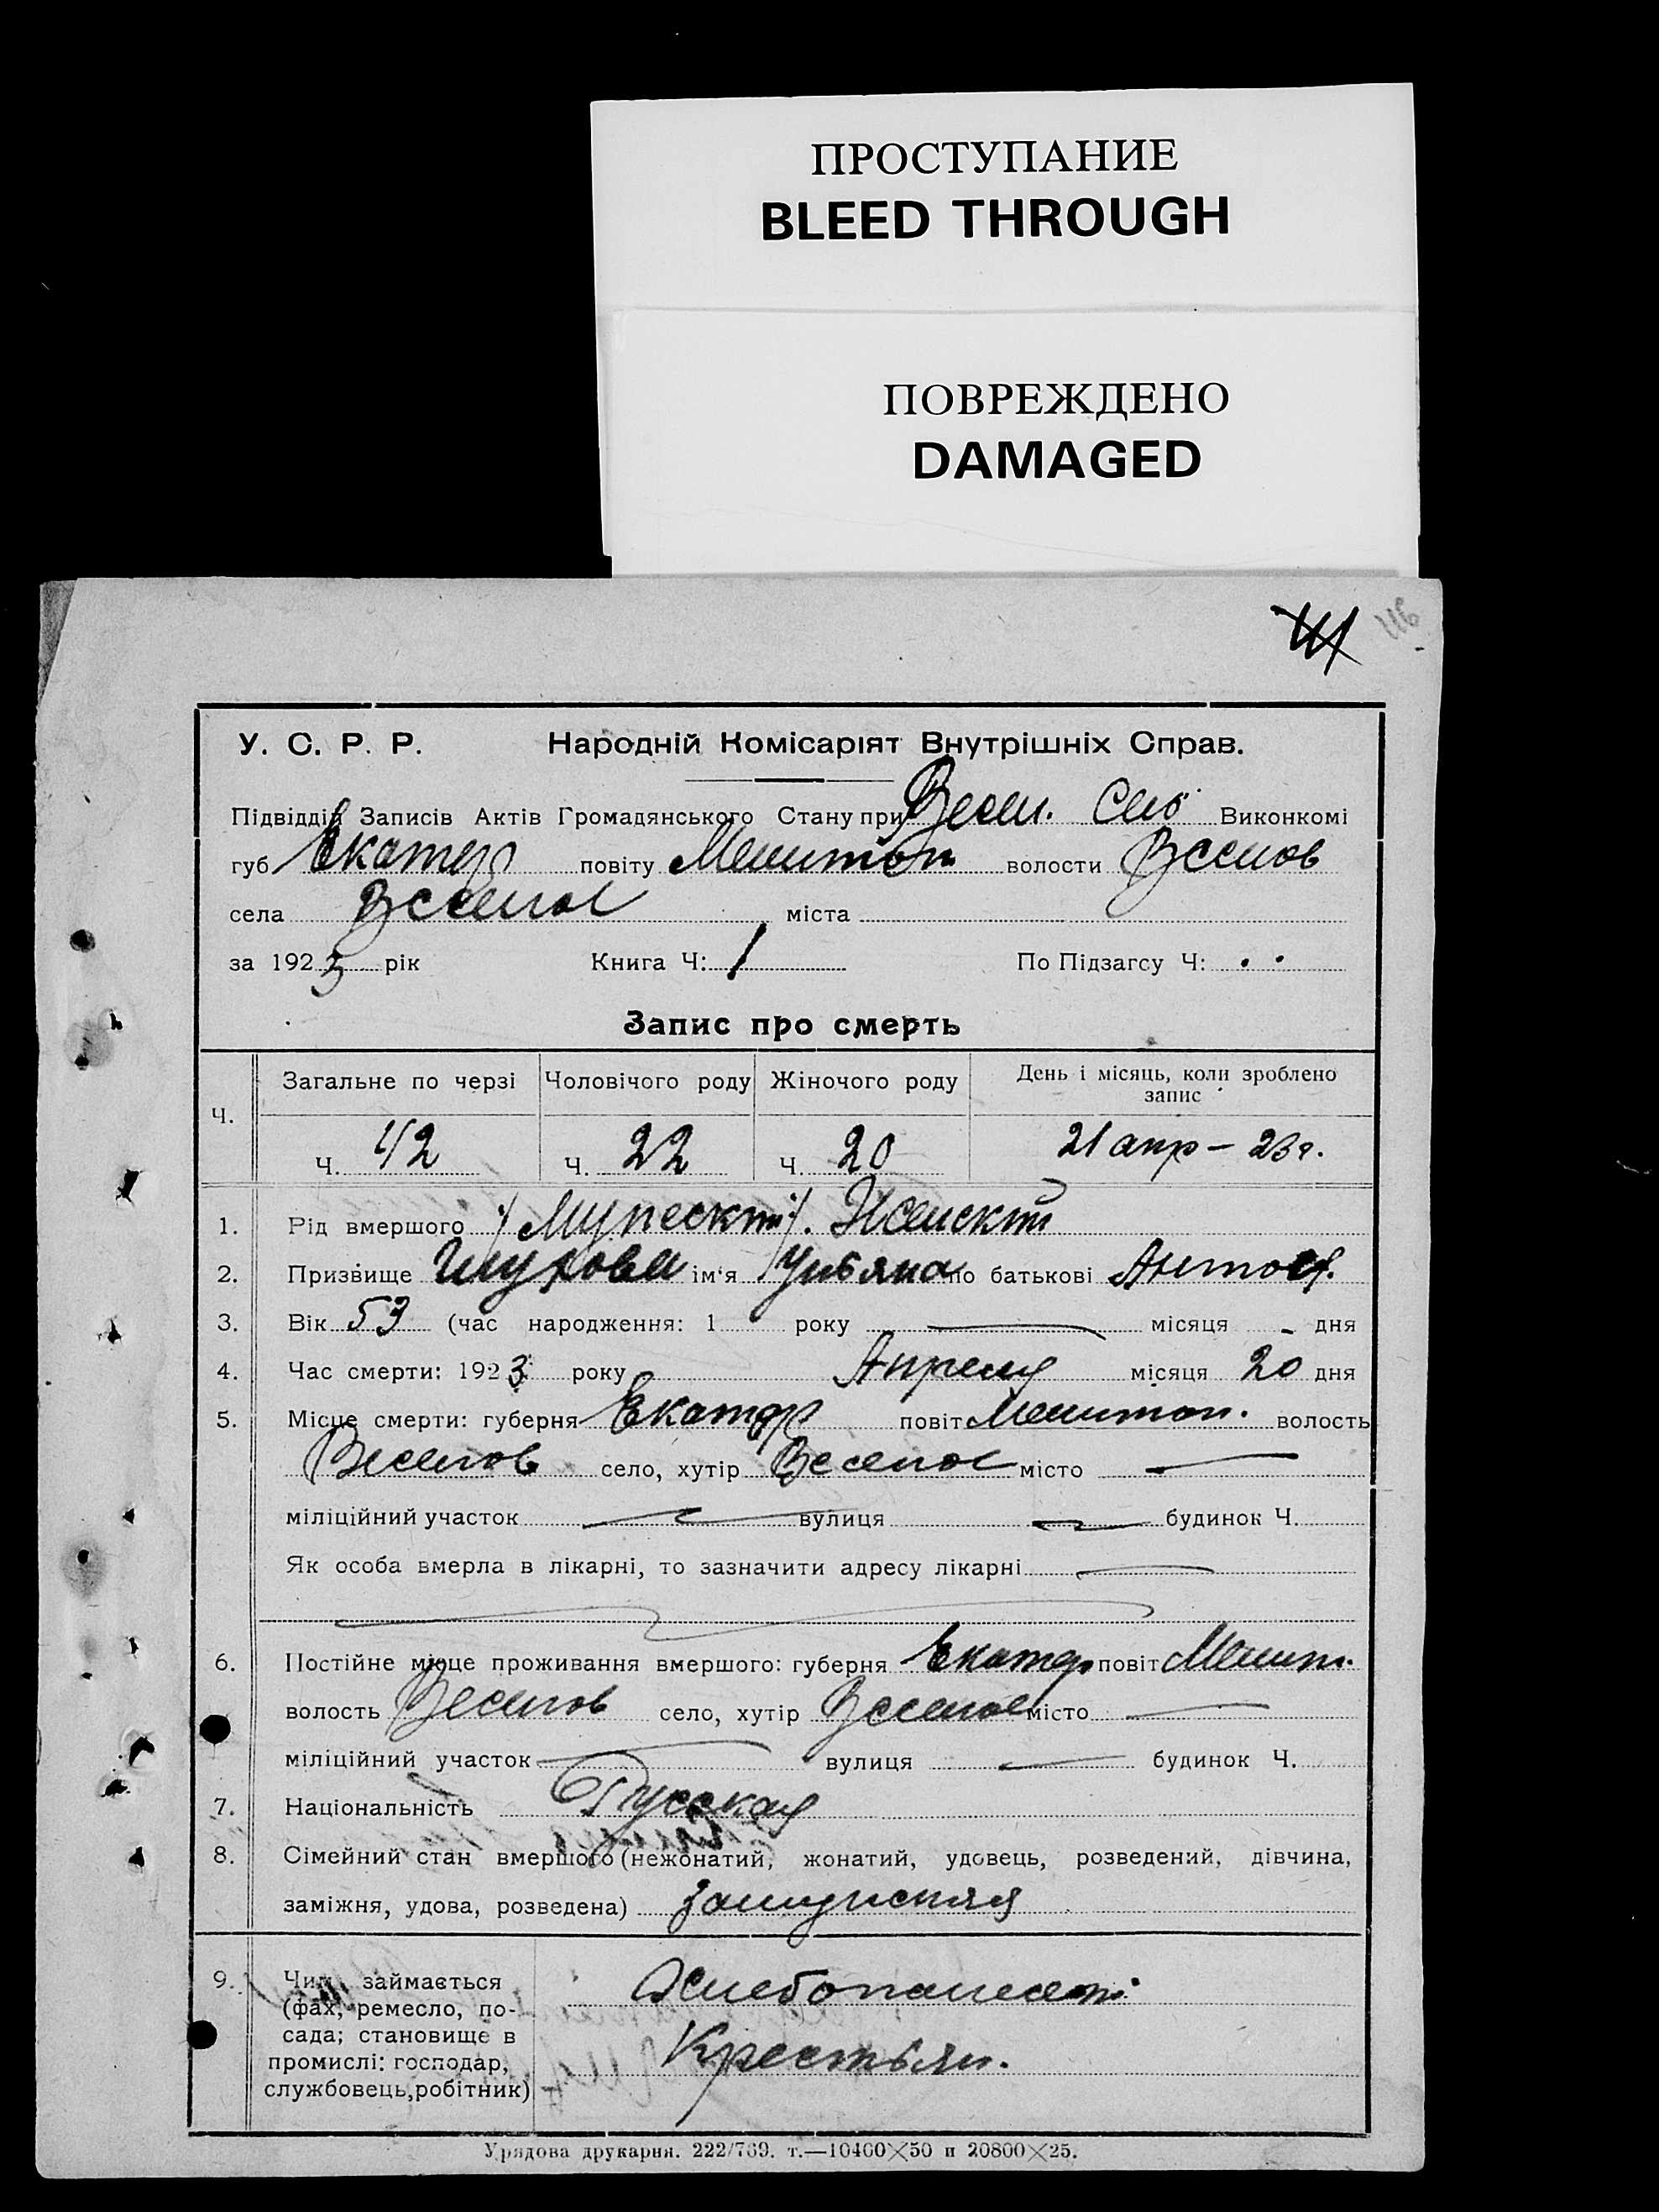 ПРОСТУПАНИЕ
BLEED THROUGH
ПОВРЕЖДЕНО
DAMAGED
У. С. Р. Р. Народній Комісаріят Внутрішніх Справ.
Підвідділ Записів Актів Громадянського Стану при Весел. Виконкомі
губ Екатер повіту Мелитоп волости Веселов
села Веселое міста
за 1923 рік Книга Ч: 1 По Підзагсу Ч:
Запис про смерть
Загальне по черзі Чоловічого роду Жіночого роду День і місяць, коли зроблено
запис
Ч.
Ч. 42 Ч. 22 Ч. 20 21 апр – 23 г.
1. Рід вмершого Мужеский. Женский
2. Призвище ім'я Ульяна по батькові Антон.
3. Вік 53 (час народження: 1 року місяця дня
4. Час смерти: 1923 року Апреля місяця 20 дня
5. Місце смерти: губерня Екатер повіт Мелитоп. волость
Веселов село, хутір Веселое місто
міліційний участок вулиця будинок Ч.
Як особа вмерла в лікарні, то зазначити адресу лікарні
6. Постійне місце проживання вмершого: губерня Екатер повіт Мелит.
волость Веселов село, хутір Веселое місто
міліційний участок вулиця будинок Ч.
7. Національність Русская
8. Сімейний стан вмершого (нежонатий, жонатий, удовець, розведений, дівчина,
заміжня, удова, розведена) замужняя
9. Чим займається
(фах, ремесло, по-
сада; становище в
промислі: господар,
службовець, робітник)
Хлебопашест.
Крестьян.
Урядова друкарня. 222/769. т.—10400×50 и 20800×25.